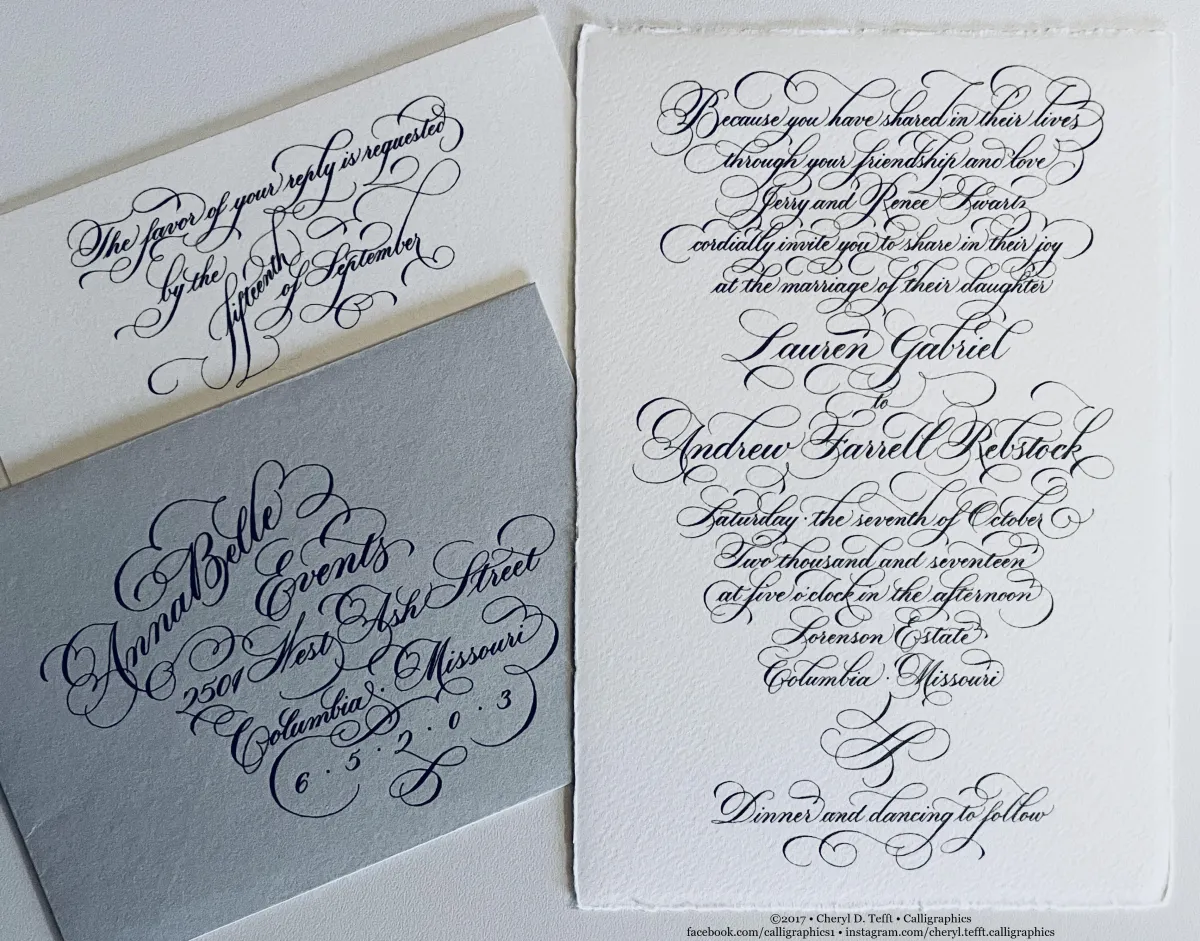 The favor of your reply is requested
by the
fifteenth
of September
AnnaBelle
Events
2501 West Ash Street
Columbia · Missouri
6 · 5 · 2 · 0 · 3
Because you have shared in their lives
through your friendship and love
Jerry and Renee Swartz
cordially invite you to share in their joy
at the marriage of their daughter
Lauren Gabriel
to
Andrew Farrell Rebstock
Saturday · the seventh of October
Two thousand and seventeen
at five o'clock in the afternoon
Sorenson Estate
Columbia · Missouri
Dinner and dancing to follow
©2017 • Cheryl D. Tefft • Calligraphics
facebook.com/calligraphics1 • instagram.com/cheryl.tefft.calligraphics